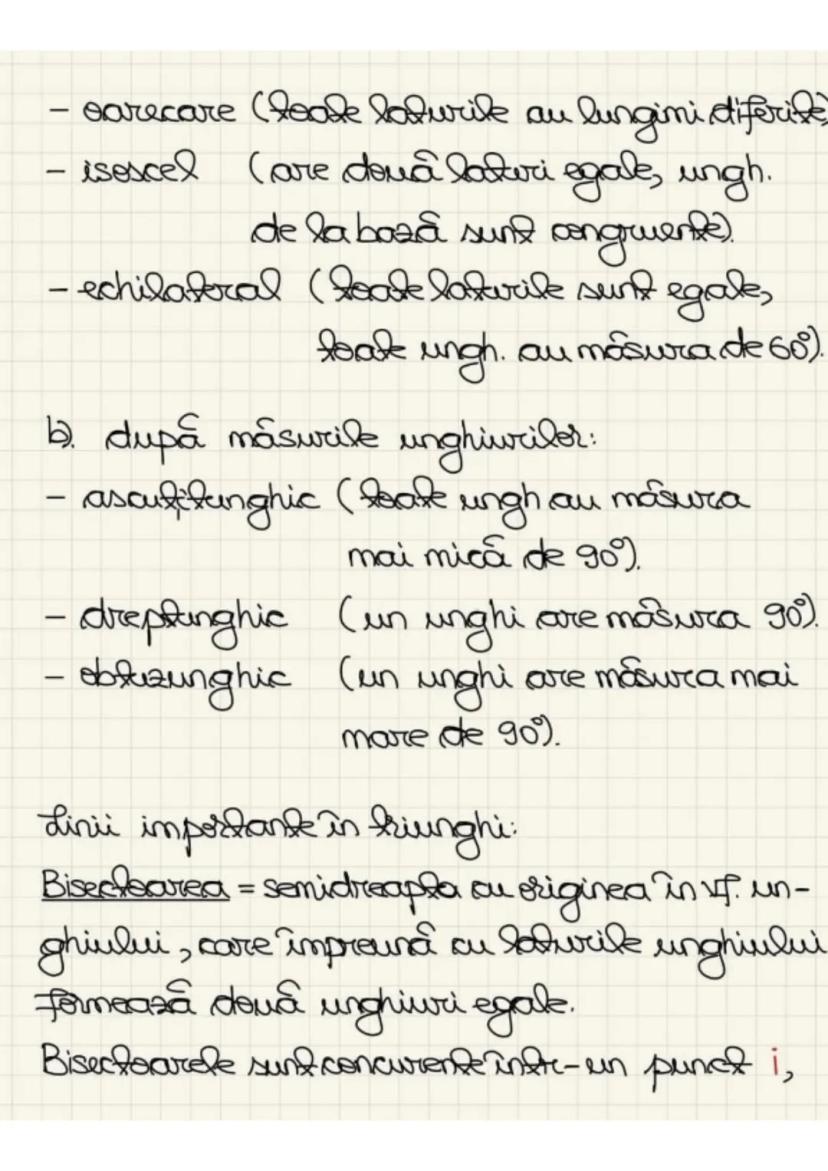 - oarecare (toate laturile au lungimi diferite)
- isoscel (are două laturi egale, ungh.
de la bază sunt congruente).
- echilateral (toate laturile sunt egale,
toate ungh. au măsura de 60°).
b). după măsurile unghiurilor:
- ascuțitunghic (toate ungh au măsura
mai mică de 90°).
- dreptunghic (un unghi are măsura 90°).
- obtuzunghic (un unghi are măsura mai
mare de 90°).
Linii importante în triunghi:
Bisectoarea = semidreapta cu originea în vf. un-
ghiului, care împreună cu laturile unghiului
formează două unghiuri egale.
Bisectoarele sunt concurente într-un punct i,